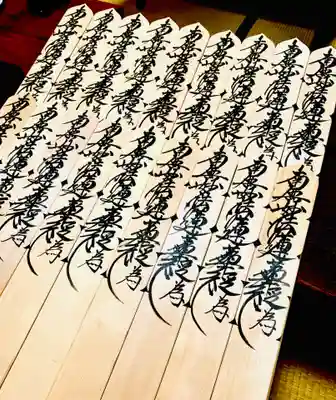 南無妙法蓮華経
南無妙法蓮華経
南無妙法蓮華経
南無妙法蓮華経
南無妙法蓮華経
南無妙法蓮華経
南無妙法蓮華経
南無妙法蓮華経
南無妙法蓮華経為
南無妙法蓮華経為
南無妙法蓮華経為
南無妙法蓮華経為
南無妙法蓮華経為
南無妙法蓮華経為
南無妙法蓮華経為